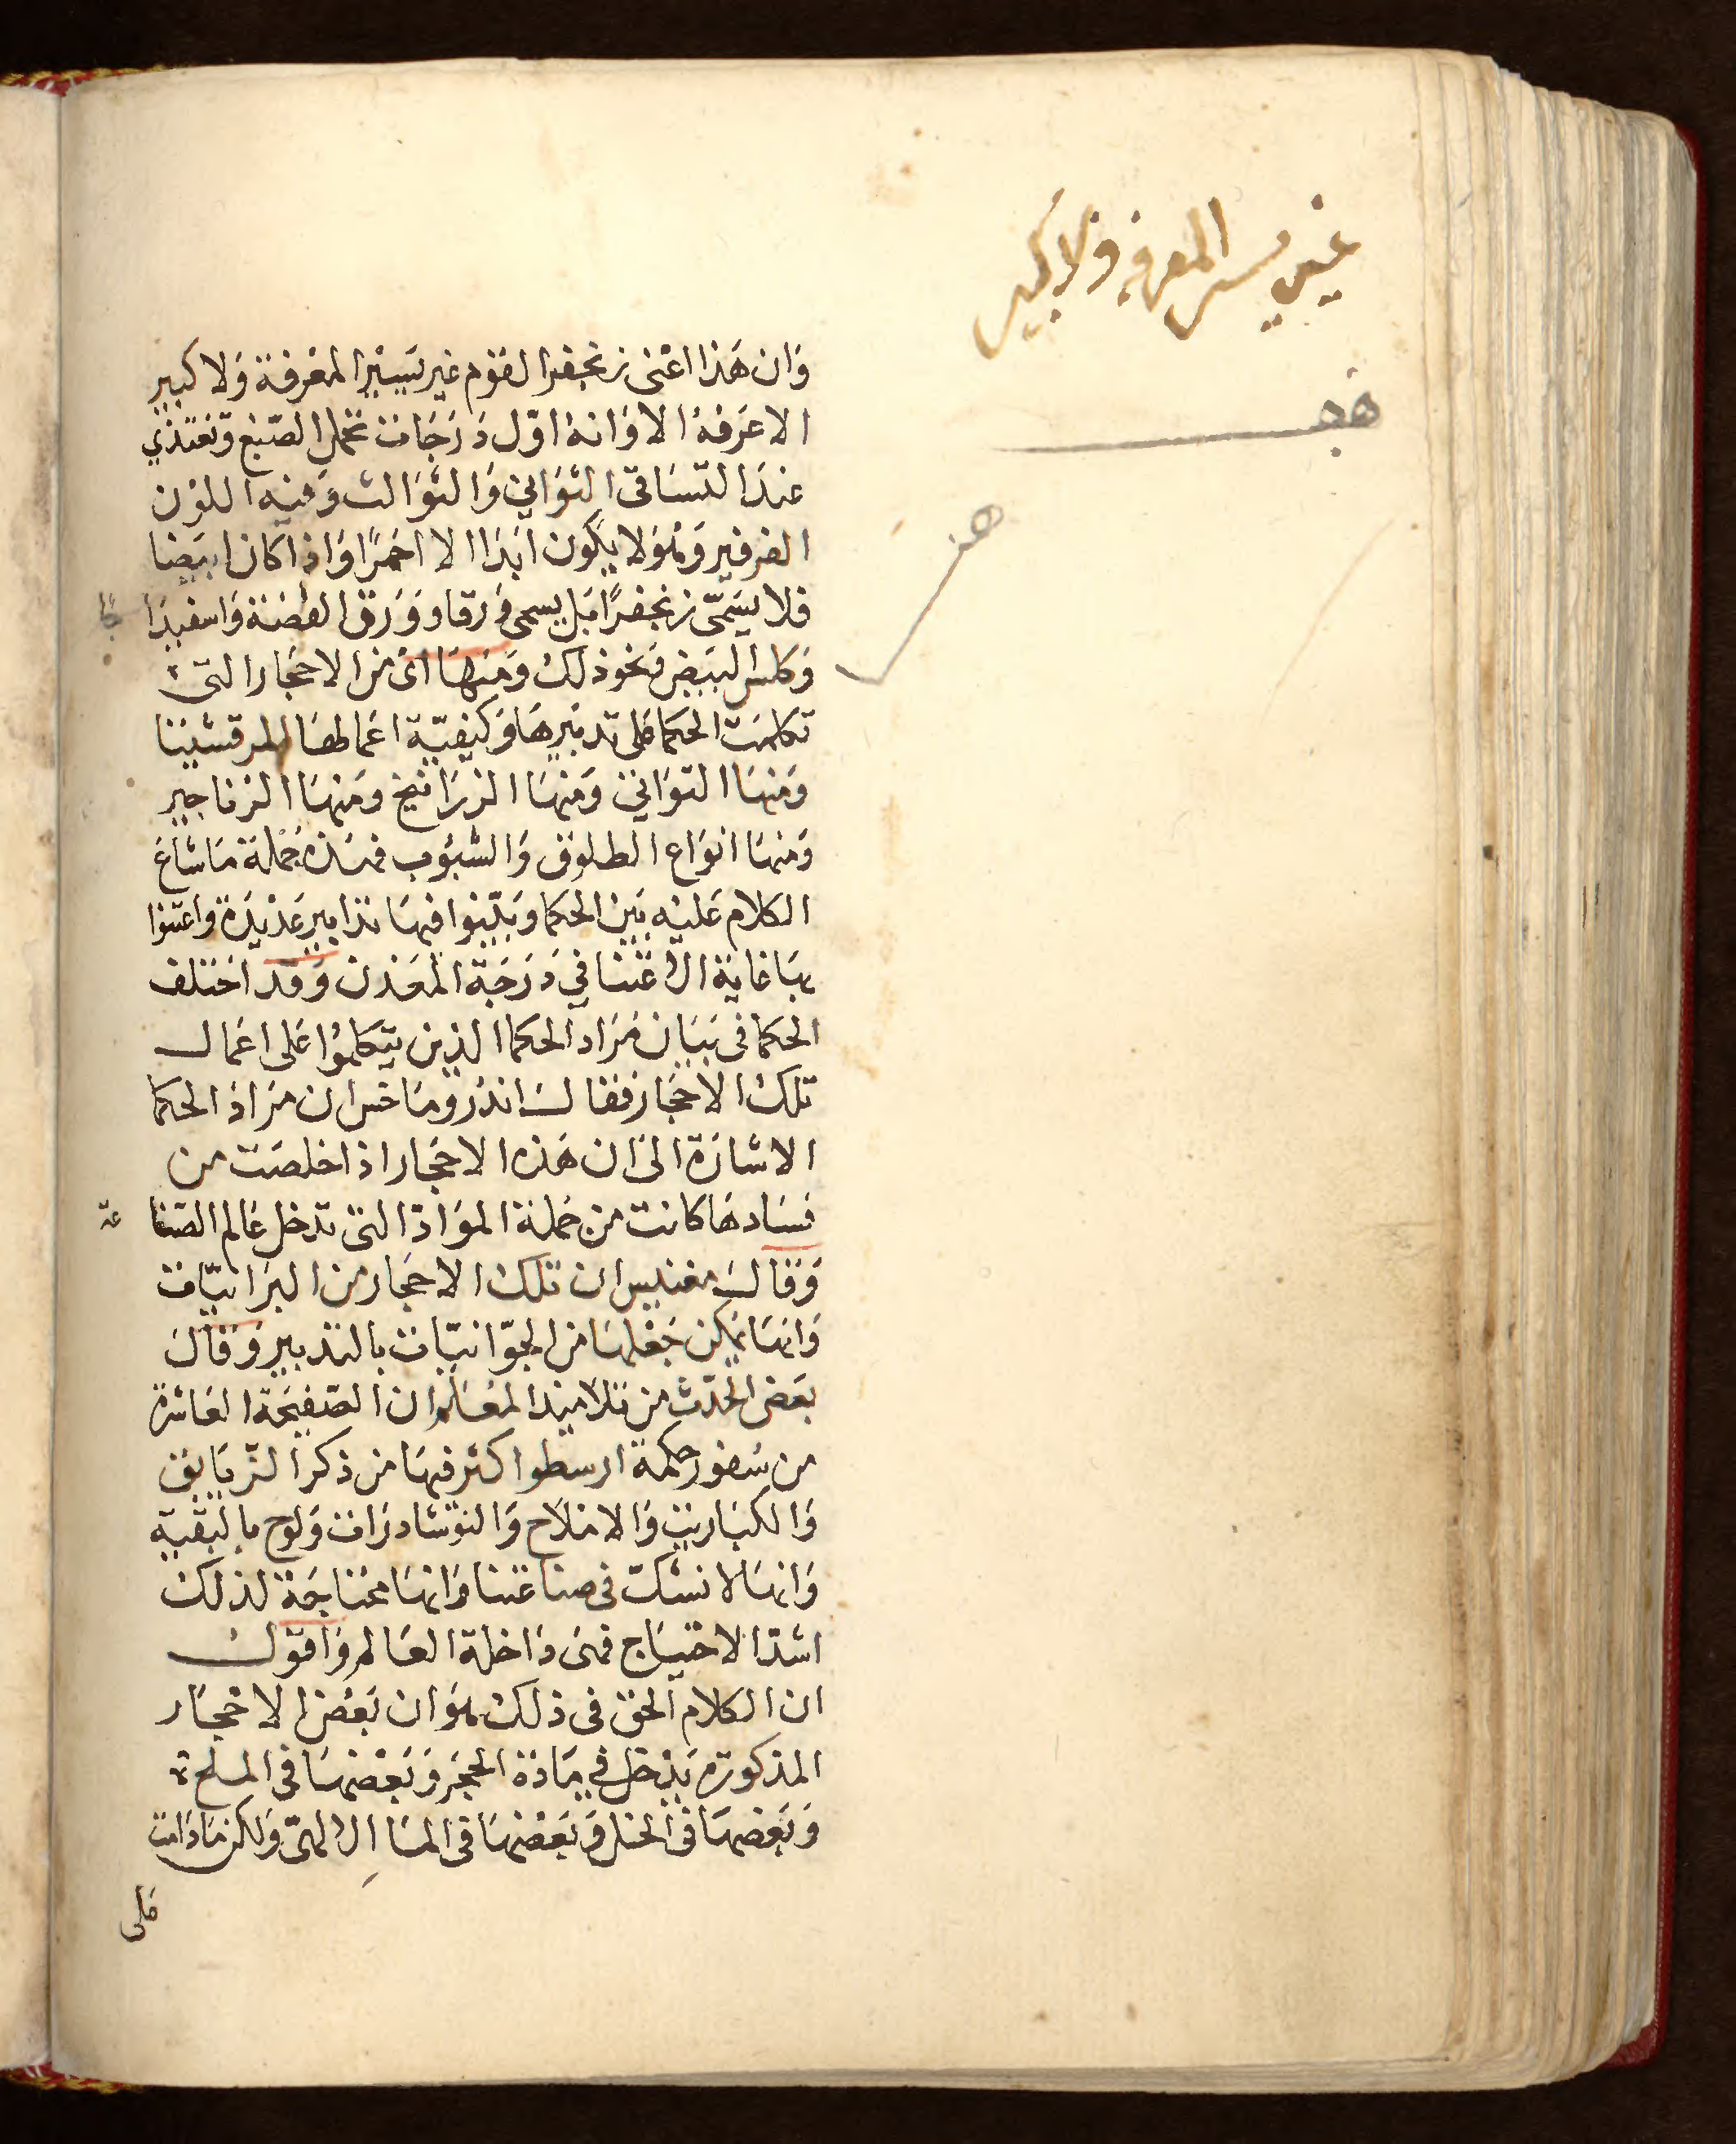 غير يسير المعرفه ولا كبير
وان هذا اعنى زنجفرا لقوم غير يسير المعرفة ولا كبير
الا عرفه الا وانه اول درجات تحمل الصبغ وتغتذي
عند التساقى الثواني والثوالث وفيه اللون
الفرفير وهو لا يكون ابدا الا احمرا واذا كان ابيضا
فلا يسمى زنجفرا بل يسمى ورقا وورق الفضنة واسفيدا
جا
وكلس البيض ونحو ذلك ومنها اى من الاحجار التى
تكلمت الحكما على تدبيرها وكيفية اعمالها المرقشيثا
ومنها التواني ومنها الزرانيخ ومنها الزناجير
ومنها انواع الطلوق والشبوب فهذه جملة ما شاع
الكلام عليه بين الحكما وبينوا فيها تدابير عديدة واعتنوا
بها غاية الاعتنا في درجة المعدن وقد اختلف
الحكما فى بيان مراد الحكما الذين تكلموا على اعمال
تلك الاحجار فقال اندروماخس ان مراد الحكما
الاشارة الى ان هذه الاحجار اذا خلصت من
فسادها كانت من جملة المواد التى تدخل عالم الصنا
عة
وقال مغنيس ان تلك الاحجار من البرانيات
وانها يمكن جعلها من الجوانيات بالتدبير وقال
بعض الحدث من تلاميذ المعلم ان الصفيحة العاشرة
من سفور حكمة ارسطو اكثر فيها من ذكر الزيابق
والكباريت والاملاح والنوشادرات ولوح بالبقية
وانها لا نشك فى صناعتنا وانها محتاجة لذلك
اشد الاحتياج فهى داخلة العالم واقول
ان الكلام الحق فى ذلك هو ان بعض الاحجار
المذكورة يدخل في مادة الحجر وبعضها فى الملح
وبعضها فى الخل وبعضها فى الما الالهى ولكن مادامت
على